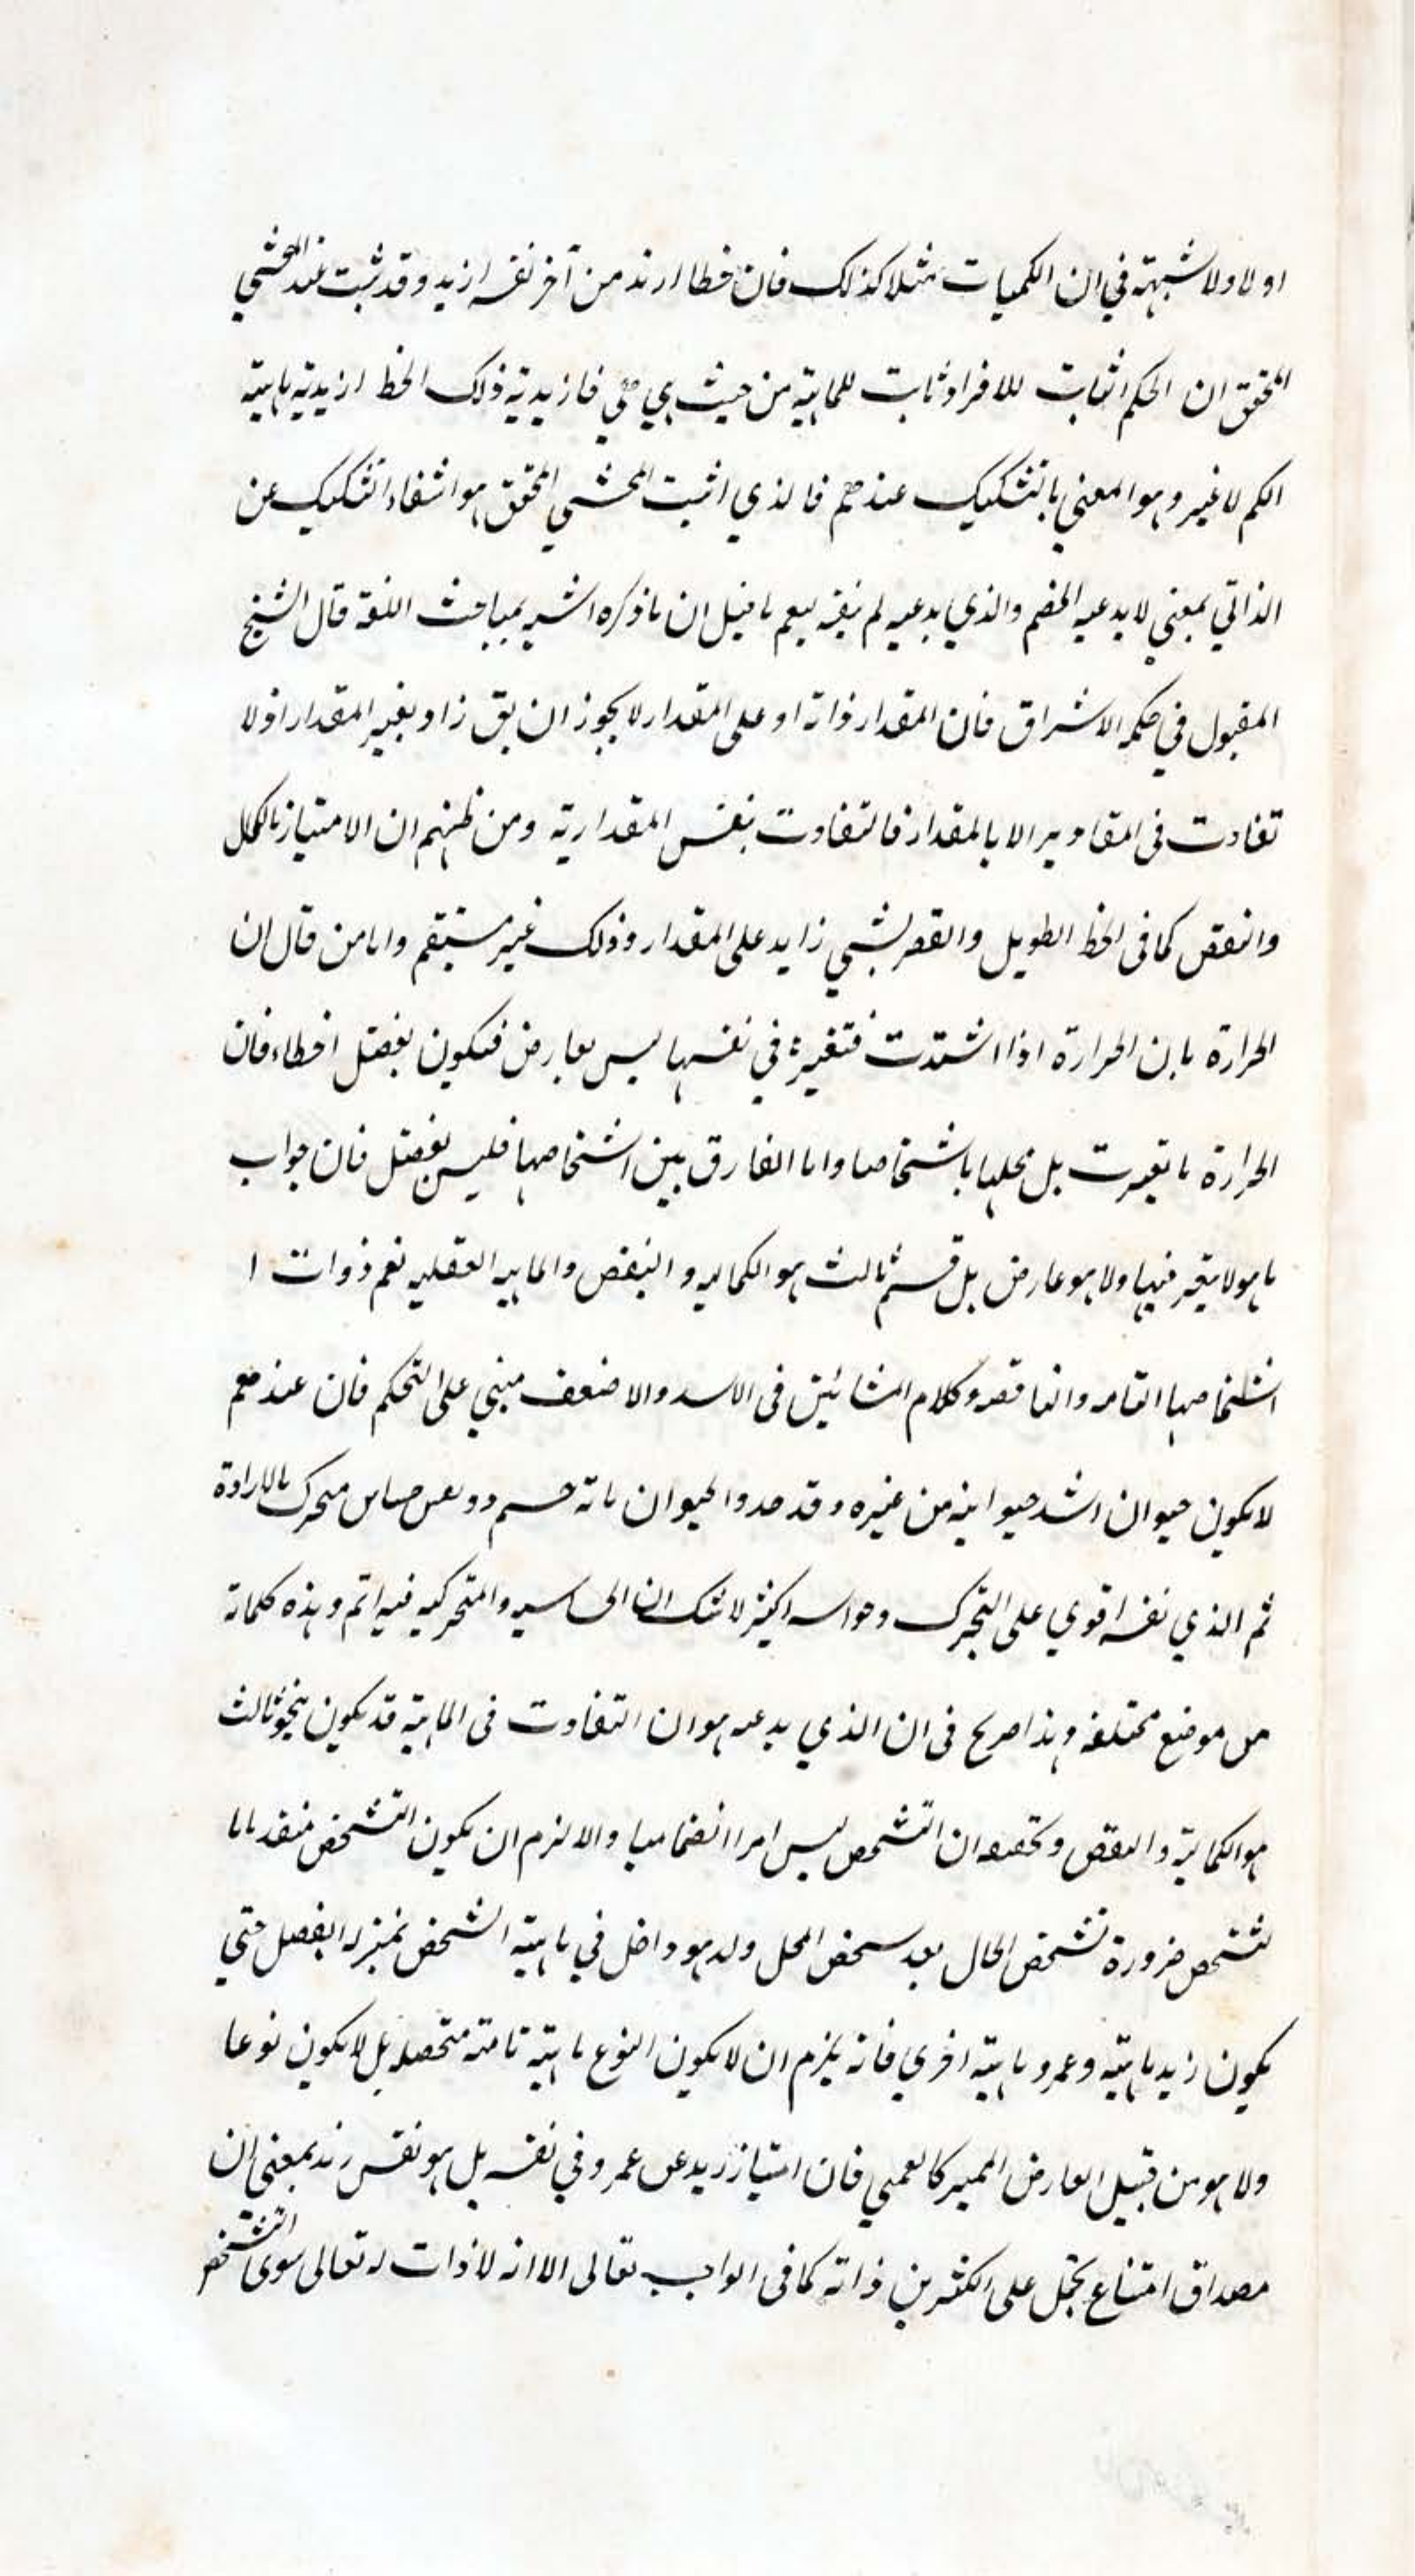 اولا ولا شبهة في ان الكميات مثلا كذلك فان خطا ازيد من آخر نفسه ازيد وقد ثبت عند المحشي
المحقق ان الحكم الثابت للافراد ثابت للماهية من حيث هي هي فازيدية ذلك الخط ازيدية ماهية
الكم لا غير وهو المعني بالتشكيك عندهم فالذي اثبت المحشي المحقق هو انتفاء التشكيك عن
الذاتي بمعني لا يدعيه الخصم والذي يدعيه لم ينفه نعم ما قيل ان ما ذكره اشبه بمباحث اللغة قال الشيخ
المقبول في حكمه الاشراق فان المقدار اذا زاد على المقدار لا يجوز ان يق زاد بغير المقدار اذ لا
تفاوت في المقادير الا بالمقدار فالتفاوت بنفس المقدارية ومن ظنهم ان الامتياز بالكمال
والنقص كما في الخط الطويل والقصر بشي زايد على المقدار وذلك غير مستقيم واما من قال ان
الحرارة بان الحرارة اذا اشتدت فتغيرها في نفسها ليس بعارض فتكون بفصل اخطاء فان
الحرارة ما تغيرت بل محلها باشخاصها واما الفارق بين اشخاصها فليس بفصل فان جواب
ما هو لا يتغير فيها ولا هو عارض بل قسم ثالث هو الكماليه والنقص والماهيه العقليه تعم ذوات ا
اشخاصها التامه والناقصه وكلام المشائين في الاشد والاضعف مبني على التحكم فان عندهم
لا يكون حيوان اشد حيوانيه من غيره وقد حدوا الحيوان بانه جسم ذو نفس حساس متحرك بالارادة
ثم الذي نفسه اقوي على التحرك وحواسه اكثر لا شك ان الحساسيه والمتحركيه فيه اتم وهذه كلماته
من موضع مختلفه وهذا صريح في ان الذي يدعيه هو ان التفاوت في الماهية قد يكون بنحو ثالث
هو الكمالية والنقص وتحقيقه ان التشخص ليس امرا انضماميا والا لزم ان يكون التشخص متقدما
لتشخص ضرورة تشخص الحال بعد تشخص المحل ولا هو داخل في ماهية الشخص بمنزله الفصل حتي
يكون زيد ماهية وعمرو ماهية اخري فانه يلزم ان لا يكون النوع ماهية تامة متحصله بل لا يكون نوعا
ولا هو من قبيل العارض المميز كالعمي فان امتياز زيد عن عمرو في نفسه بل هو نفس زيد بمعني ان
مصداق امتناع تحمل على الكثرين ذاته كما في الواجب تعالى الا انه لا ذات له تعالى سوى التشخص